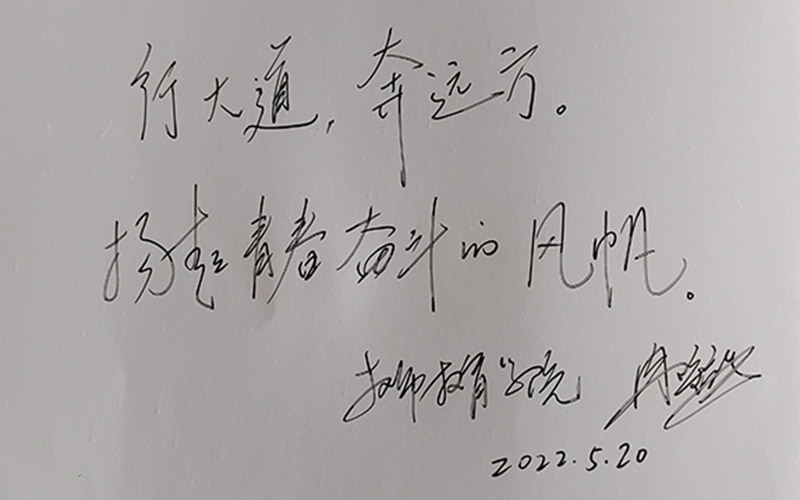 行大道，奔远方。
扬起青春奋斗的风帆。
教师教育学院
2022.5.20